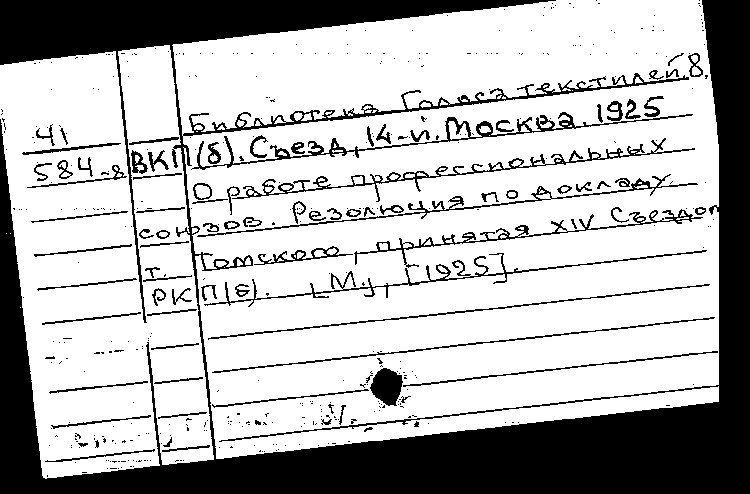 Библиотека Голоса текстилей.8.
41
584-8 ВКП(б). Съезд, 14-й. Москва. 1925
О работе профессиональных
союзов. Резолюция по докладу
т. Томского, принятая XIV Съездом
РКП(б). [М], [1925].